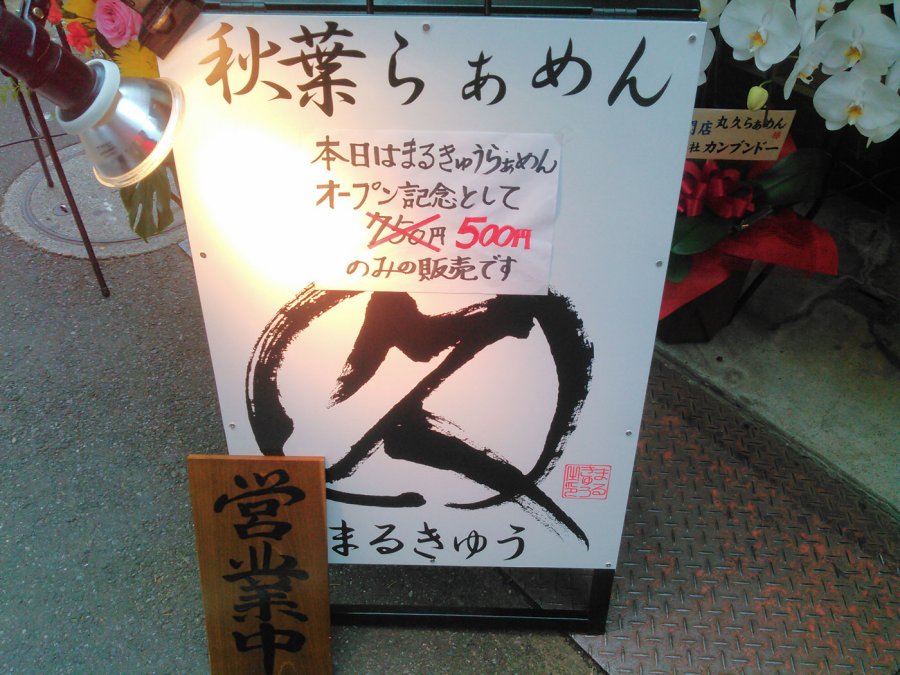 秋葉らぁめん
本日はまるきゅうらぁめん
オープン記念として
750円 500円
のみの販売です
久
まるきゅう
まる
きゅう
営業中
店 丸久らぁめん
社 カンブンドー